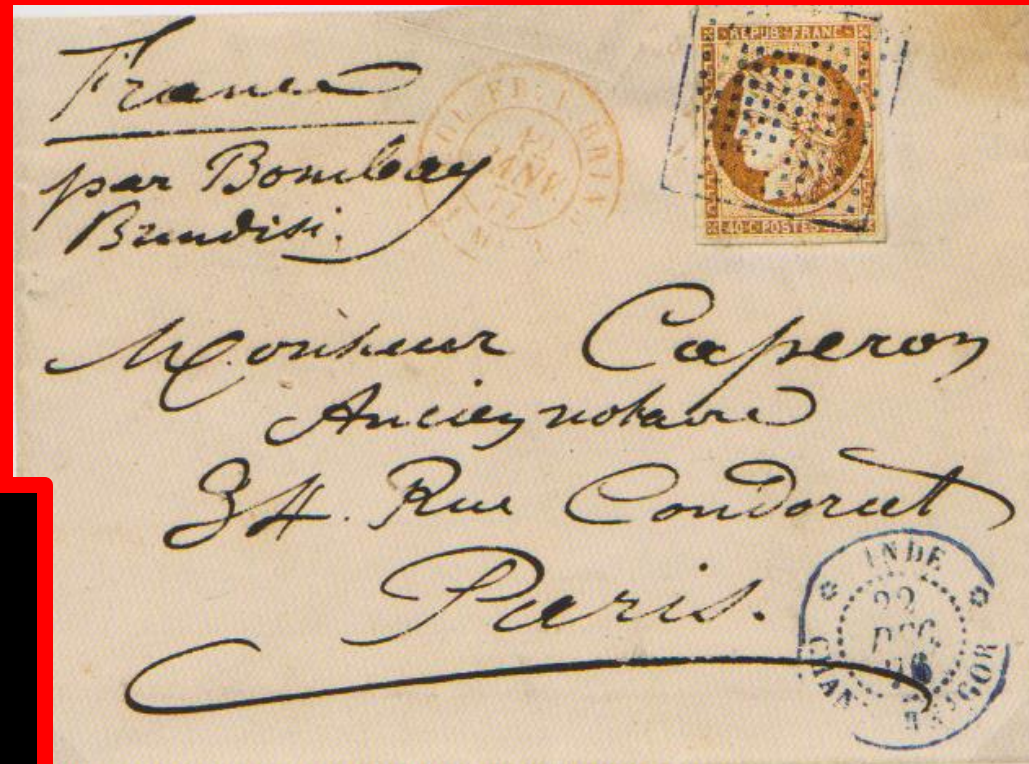 France
par Bombay
Brindisi.
REPUB · FRANC
40 · C · POSTES · 40 · C
Monsieur Caperon
Ancien notaire
34. Rue Condorcet
Paris.
INDE
22
DEC.
76
CHANDERNAGOR